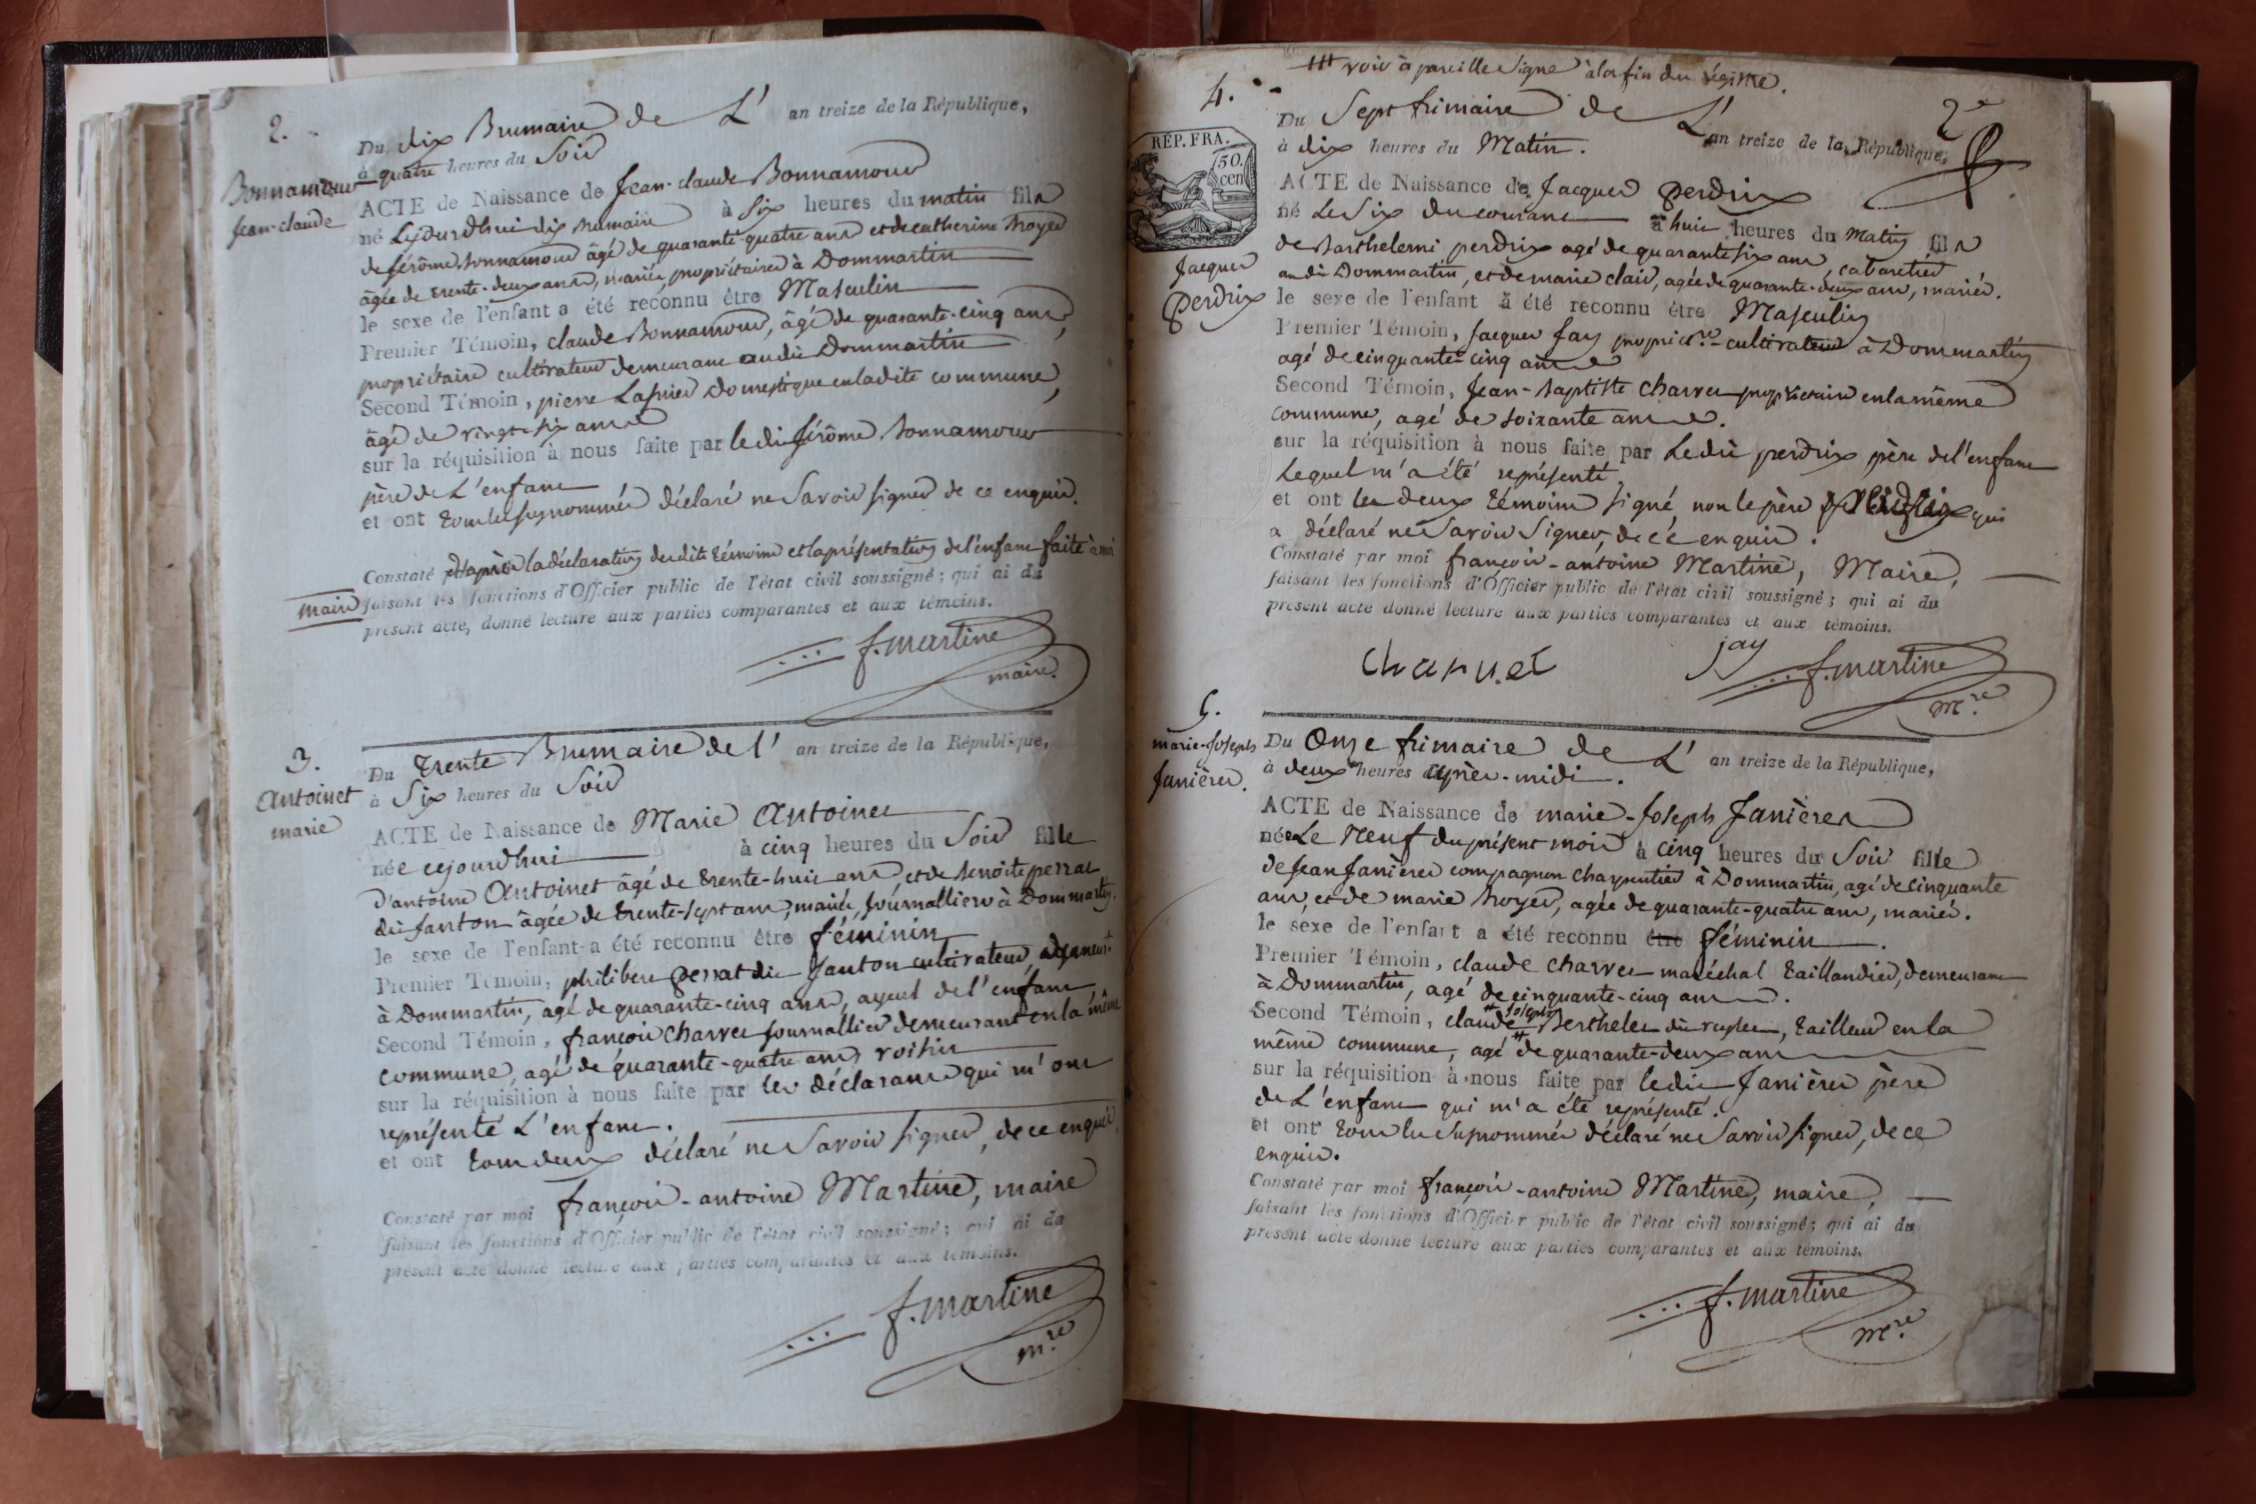 2.
Du dix Brumaire de L' an treize de la République,
à quatre heures du Soir
Bonnamour
Jean-claude
ACTE de Naissance de Jean-claude Bonnamour
né cejourdhui dix Brumaire à Six heures du matin fils
de Jérôme Bonnamour âgé de quarante-quatre ans et de catherine Broyer
âgée de trente-deux ans, mariés, propriétaires à Dommartin
le sexe de l'enfant a été reconnu être Masculin
Premier Témoin, claude Bonnamour, âgé de quarante-cinq ans,
propriétaire cultivateur demeurant audit Dommartin
Second Témoin, pierre Domestique en ladite commune,
âgé de vingt-six ans
sur la réquisition à nous faite par ledit Jérôme Bonnamour
père de L'enfant
et ont tous les susnommés déclaré ne Savoir signer de ce enquis.
Constaté d'après la déclaration desdits témoins et la présentation de l'enfant faite à moi
maire
faisant les fonctions d'Officier public de l'état civil soussigné; qui ai du
présent acte, donné lecture aux parties comparantes et aux témoins.
f. martine
maire.
3.
Antoinet
marie
Du trente Brumaire de l' an treize de la République,
à Six heures du Soir
ACTE de Naissance de Marie Antoinet
née cejourdhui à cinq heures du Soir fille
d'antoine Antoinet âgé de trente-huit ans, et de Benoite perrat
dit Janton âgée de trente-sept ans, mariés, Journalliers à Dommartin.
le sexe de l'enfant a été reconnu être féminin
Premier Témoin, philibert perrat dit Janton cultivateur, demeurt
à Dommartin, agé de quarante-cinq ans, ayeul de l'enfant,
Second Témoin, françois Charvet Journallier demeurant en la même
commune, agé de quarante-quatre ans, voisin
sur la réquisition à nous faite par les déclarans qui m'ont
représenté L'enfant.
et ont tous deux déclaré ne Savoir signer, de ce enquis.
Constaté par moi françois-antoine Martine, maire
faisant les fonctions d'Officier public de l'état civil soussigné; qui ai du
présent acte donné lecture aux parties comparantes et aux témoins.
f. martine
m.re
voir à pareille Signe à la fin du régistre.
4.
2e
Du Sept frimaire de L' an treize de la République,
à dix heures du Matin.
RÉP. FRA.
50.
cen
Jacques
Perdrix
ACTE de Naissance de Jacques Perdrix
né Le Six du courant à huit heures du Matin fils
de Barthelemi perdrix agé de quarante-six ans, cabaretier
audit Dommartin, et de marie clair, agée de quarante-deux ans, mariés.
le sexe de l'enfant a été reconnu être Masculin
Premier Témoin, Jacques Jay propriét.re cultivateur à Dommartin
agé de cinquante-cinq ans
Second Témoin, Jean-Baptiste Charvet propriétaire en la même
commune, agé de soixante ans.
sur la réquisition à nous faite par Ledit perdrix père de l'enfant
Lequel m'a été représenté
et ont les deux témoins signé non le père qui
a déclaré ne Savoir Signer, de ce enquis.
Constaté par moi françois-antoine Martine, Maire,
faisant les fonctions d'Officier public de l'état civil soussigné; qui ai du
présent acte donné lecture aux parties comparantes et aux témoins.
Charvet jay f. martine
M.re
5.
marie-Joseph
Janièrer.
Du Onze frimaire de L' an treize de la République,
à deux heures après-midi.
ACTE de Naissance de marie-Joseph Janières
née Le Neuf du présent mois à cinq heures du Soir fille
de Jean Janières compagnon Charpentier à Dommartin, agé de cinquante
ans, et de marie Broyer, agée de quarante-quatre ans, mariés.
le sexe de l'enfant a été reconnu être féminin.
Premier Témoin, claude charvet maréchal taillandier, demeurant
à Dommartin, agé de cinquante-cinq ans.
Second Témoin, claude Joseph Berthelet dit tailleur en la
même commune, agé de quarante-deux ans
sur la réquisition à nous faite par ledit Janières père
de L'enfant qui m'a été représenté.
et ont tous les susnommés déclaré ne Savoir signer, de ce
enquis.
Constaté par moi françois-antoine Martine, maire,
faisant les fonctions d'Officier public de l'état civil soussigné; qui ai du
présent acte donné lecture aux parties comparantes et aux témoins.
f. martine
M.re